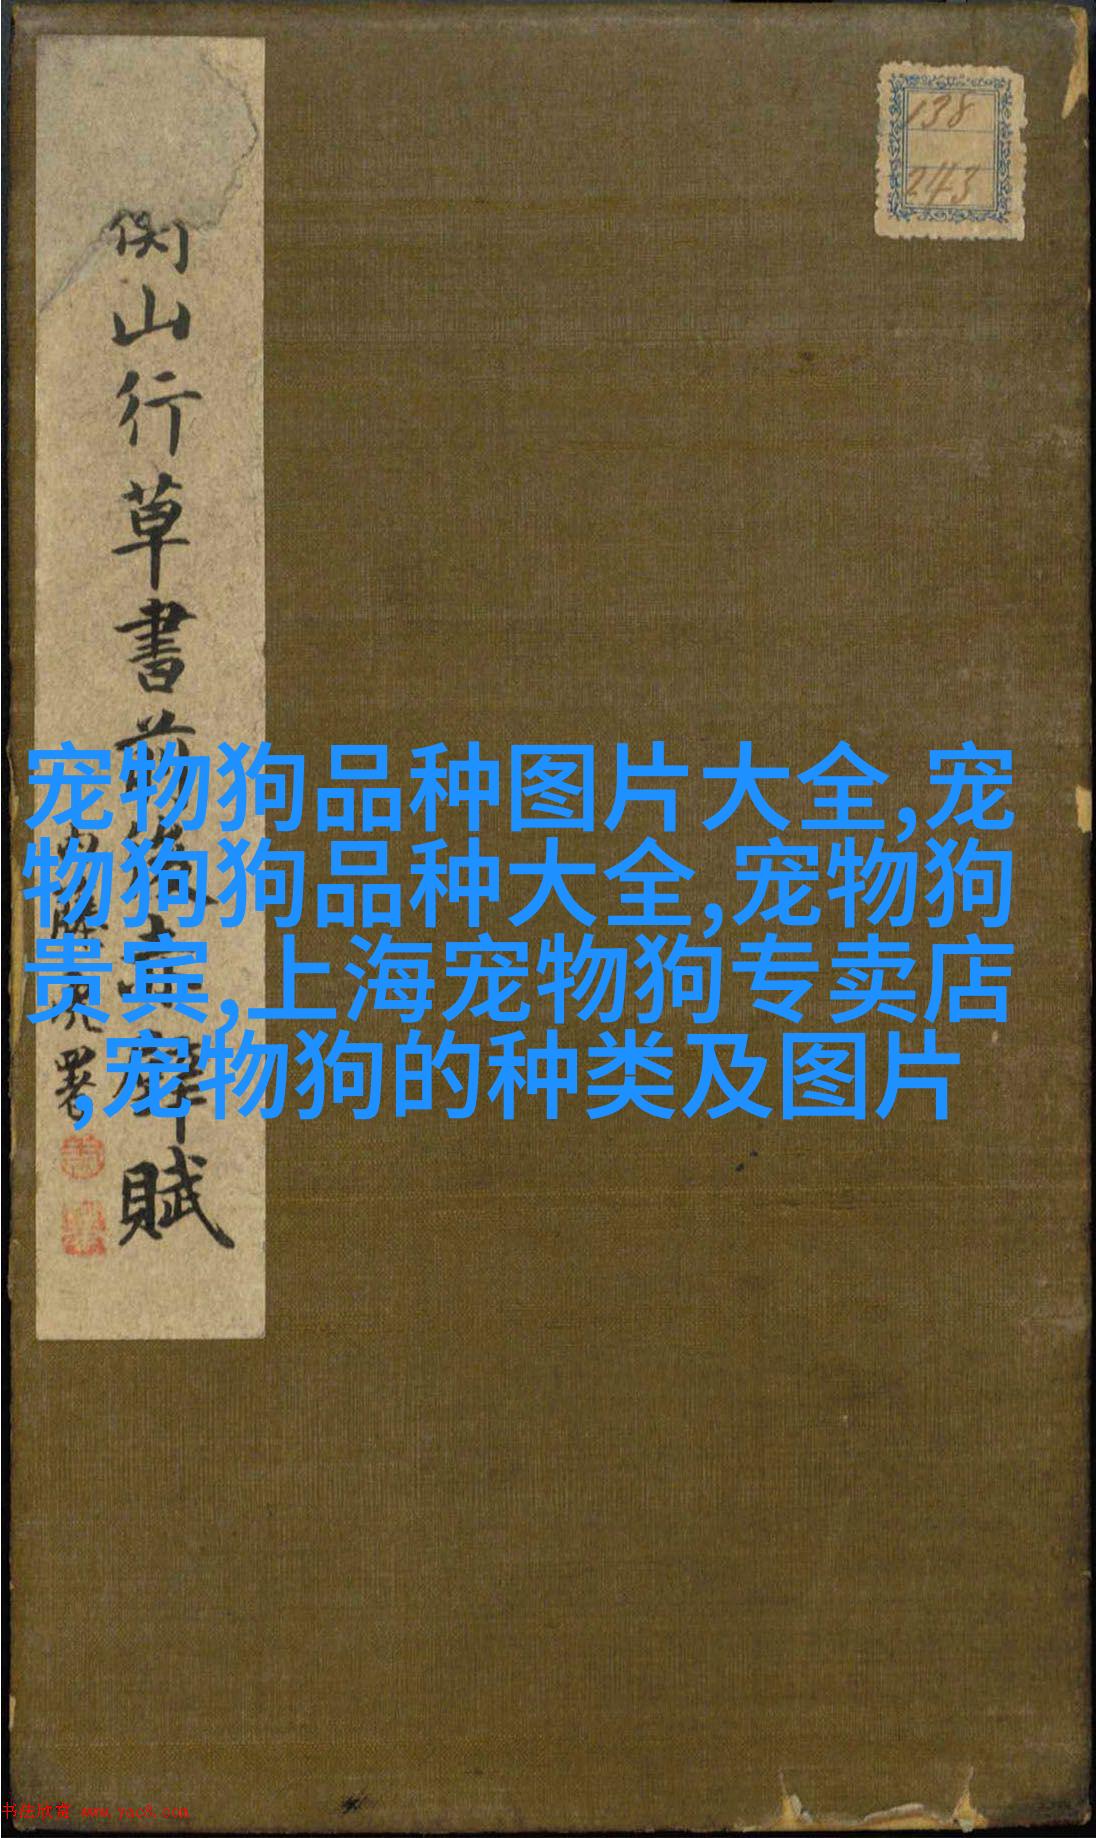 138
243
山行草書前後赤壁賦
署
宠物狗品种图片大全,宠
物狗狗品种大全,宠物狗
贵宾,上海宠物狗专卖店
,宠物狗的种类及图片
书法欣赏 www.yac8.com